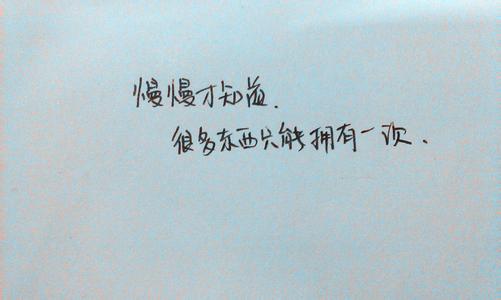 慢慢才知道.
很多东西只能拥有一次.